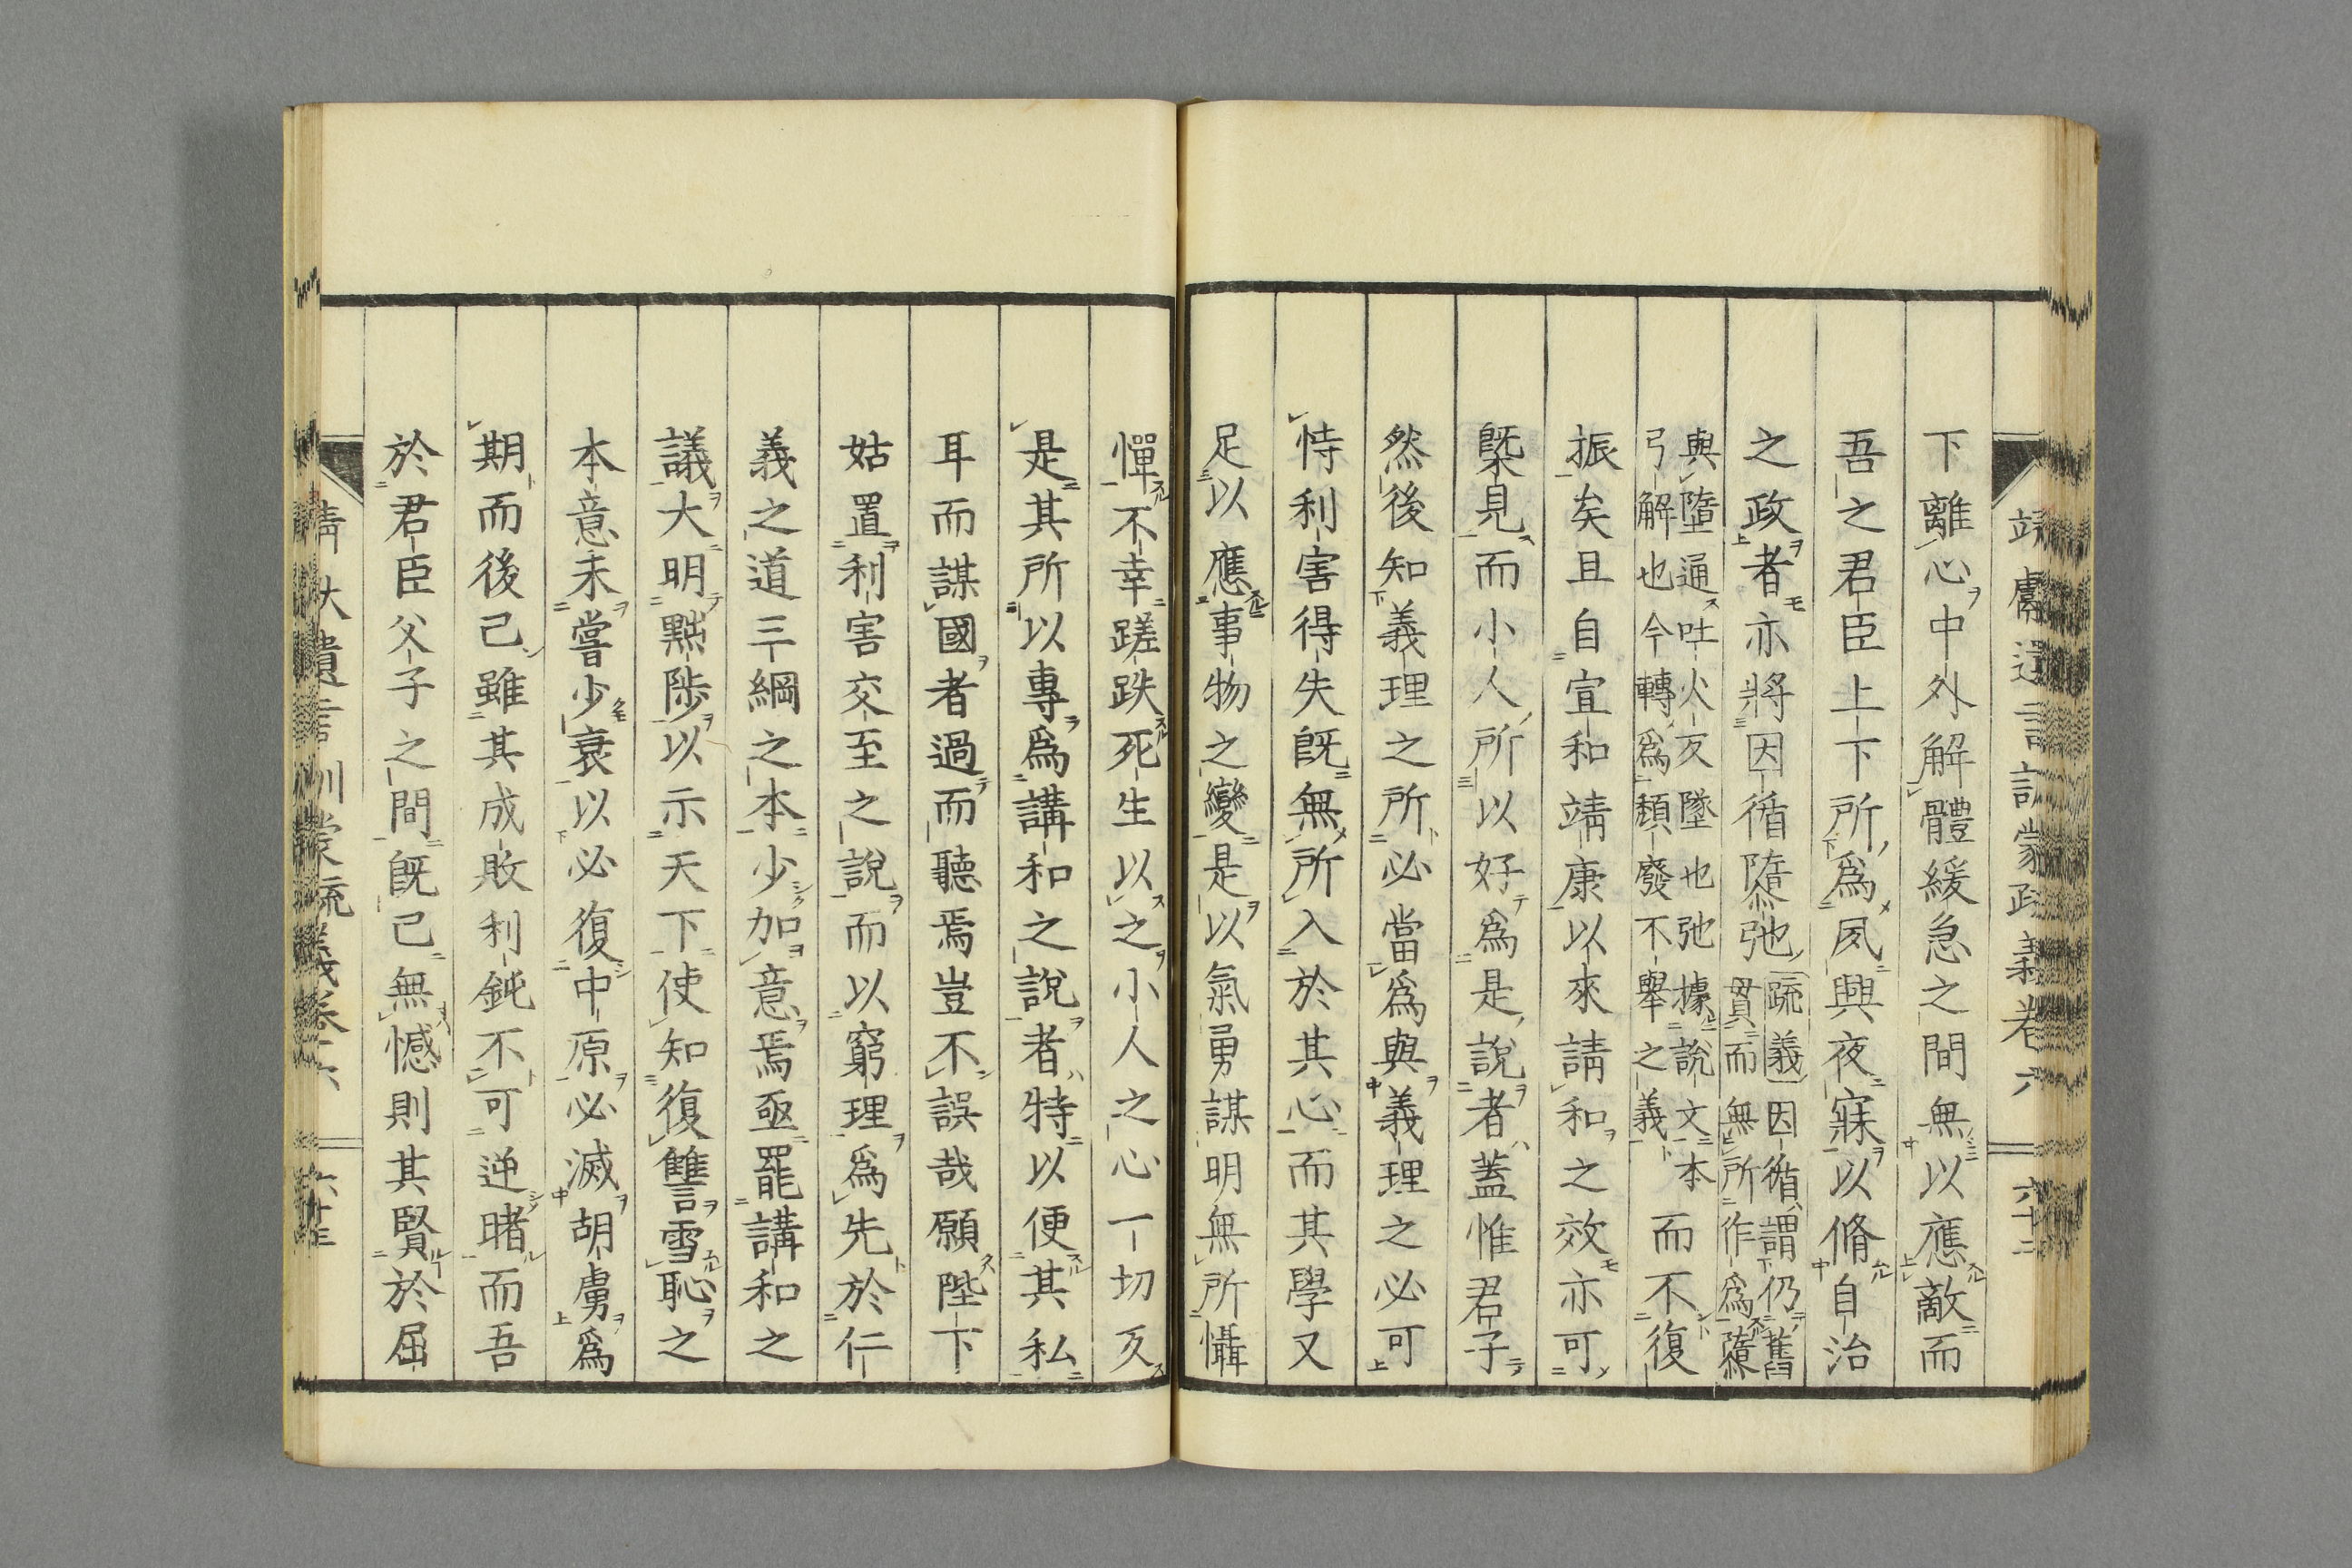 下離心中外解體緩急之間無以應敵而
吾之君臣上下所爲夙興夜寐以脩自治
之政者亦將因循隳弛疏義因循謂仍舊
貫而無所作爲隳
與墮通吐火反墜也弛據説文本
弓解也今轉爲頽廢不舉之義而不復
振矣且自宣和靖康以來請和之效亦可
槩見而小人所以好爲是説者蓋惟君子
然後知義理之所必當爲與義理之必可
恃利害得失既無所入於其心而其學又
足以應事物之變是以氣勇謀明無所懾
憚不幸蹉跌死生以之小人之心一切反
是其所以專爲講和之説者特以便其私
耳而謀國者過而聽焉豈不誤哉願陛下
姑置利害交至之説而以窮理爲先於仁
義之道三綱之本少加意焉亟罷講和之
議大明黜陟以示天下使知復讐雪恥之
本意未嘗少衰以必復中原必滅胡虜爲
期而後已雖其成敗利鈍不可逆睹而吾
於君臣父子之間既已無憾則其賢於屈